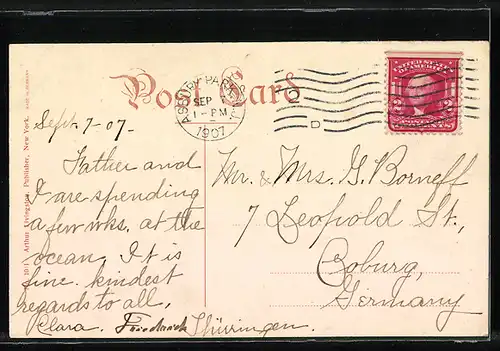 Post Card
ASBURY PARK, N.J.
SEP 7
1-PM
1907
D
UNITED STATES
OF AMERICA
2 2
TWO CENTS
Sept. 7-07.
Father and
I are spending
a few wks. at the
ocean. It is
fine. kindest
regards to all,
Clara.
Mr. & Mrs. G. Borneff
7 Leopold St.,
Coburg,
Germany
Thüringen.
Arthur Livingston, Publisher, New York.